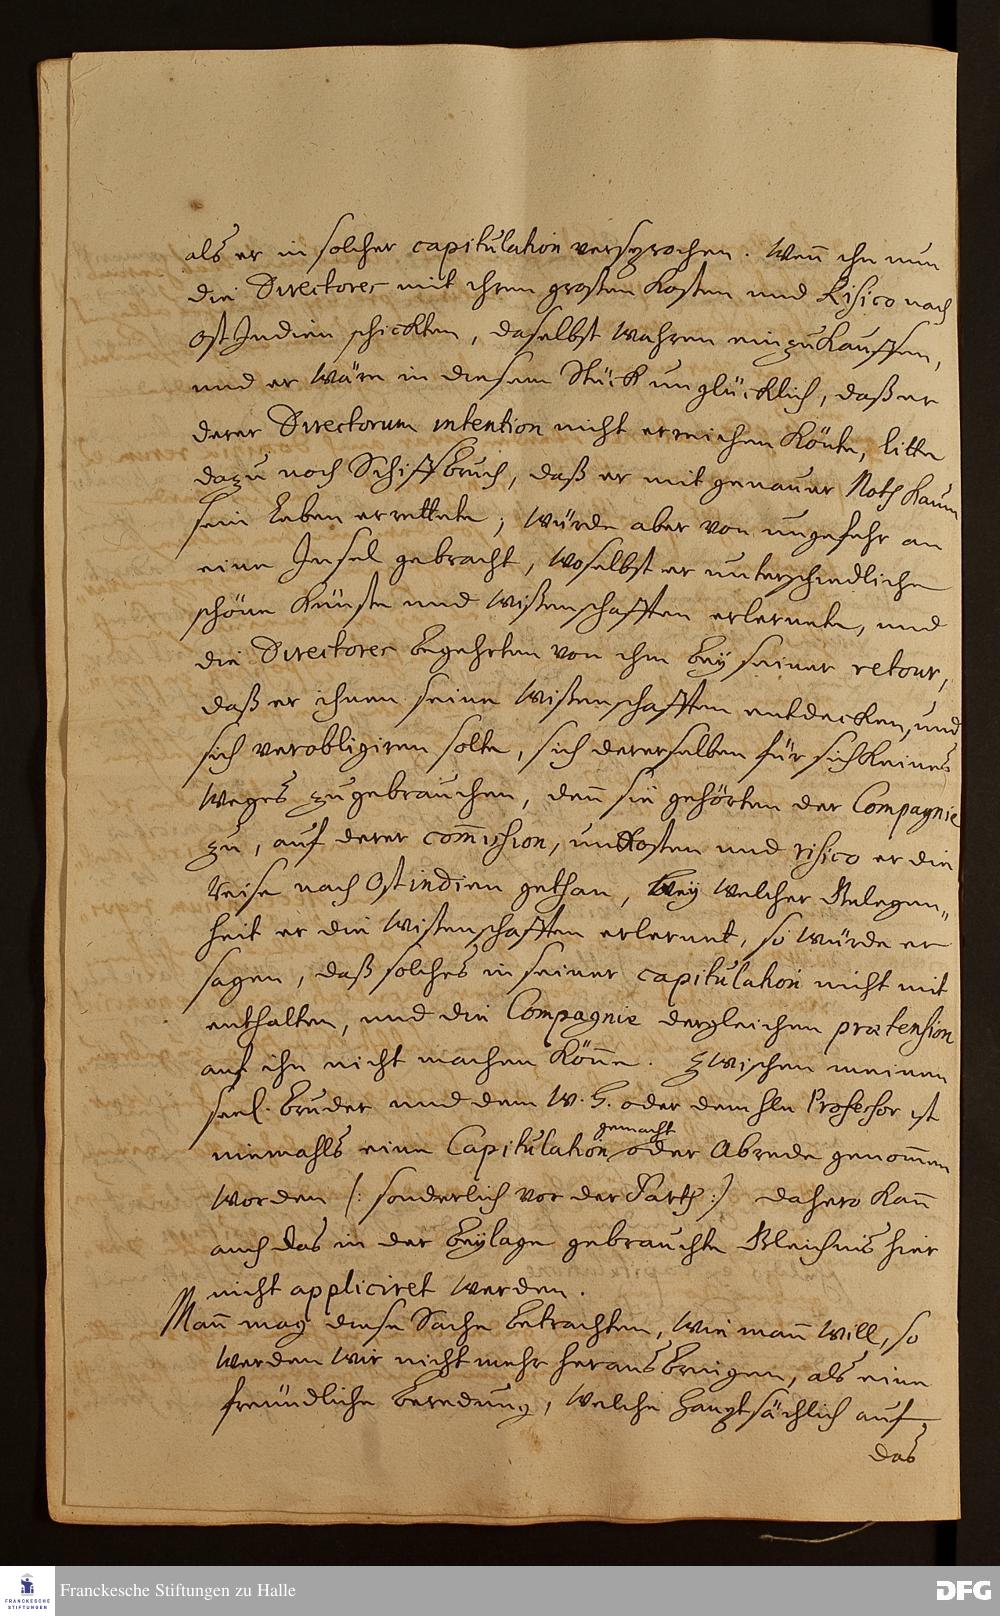 als er in solcher capitulation versprochen. Wen̄ ihn nun
die Directores mit ihren grosten Kosten und Risico nach
Ost Indien schickten, daselbst Wahren einzukauffen,
und er wäre in diesem Stück unglücklich, daß er
derer Directorum intention nicht erreichen könte, litte
dazu noch Schiffbruch, daß er mit genauer Noth kaum
sein Leben errettete; würde aber von ungefehr an
eine Insel gebracht, woselbst er unterschiedliche
schöne Künste und Wißenschafften erlernete, und
die Directores begehrten von ihm bey seiner retour,
daß er ihnen seine Wißenschafften entdecken, und
sich verobligiren solte, sich dererselben für sich keines
Weges zu gebrauchen, den̄ sie gehörten der Compagnie
zu, auf derer com̄ission, unkosten und risico er die
Reise nach Ostindien gethan, bey welcher Gelegen„
heit er die Wißenschafften erlernet, so würde er
sagen, daß solches in seiner capitulation nicht mit
enthalten, und die Compagnie dergleichen prætension
auf ihn nicht machen kön̄e. Zwischen meinen
seel. Bruder und dem W. H. oder dem Hln Professor ist
niemahls eine Capitulation gemacht oder Abrede genom̄en
worden (: sonderlich vor der Parth :) dahero kan̄
auch das in der Beylage gebrauchte Gleichnis hier
nicht appliciret werden.
Man̄ mag diese Sache betrachten, wie man̄ will, so
werden wir nicht mehr heraus bringen, als eine
freündliche Beredung, welche hauptsächlich auf
das
Franckesche Stiftungen zu Halle
FRANCKESCHE
STIFTUNGEN
DFG